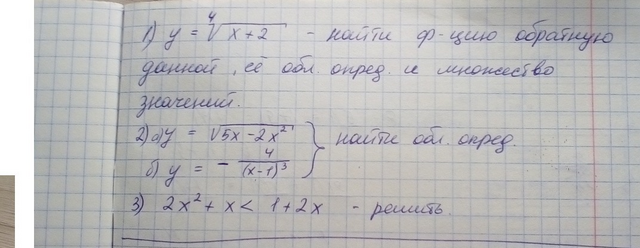 1) y = ⁴√(x+2) - найти ф-цию обратную
данной, её обл. опред. и множество
значений.
2) а) y = √(5x-2x²) } найти обл. опред.
б) y = - 4/(x-1)³
3) 2x² + x < 1 + 2x - решить.